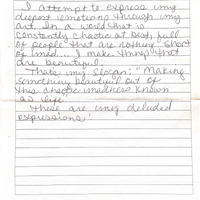 I attempt to express my
deepest emotions through my
art. In a world that is
constantly chaotic at best, full
of people that are nothing short
of mad.... I make things that
are beautiful.
Thats my slogan: "Making
something beautiful out of
this chaotic madness known
as life"
These are my deluded
expressions!